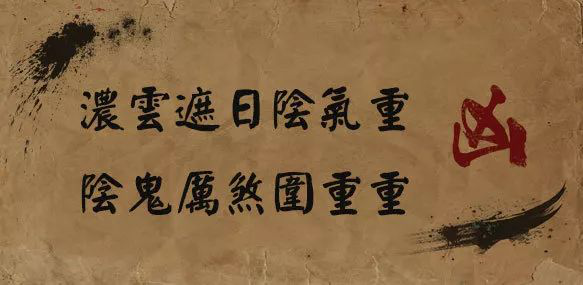 濃雲遮日陰氣重
陰鬼厲煞圍重重
凶